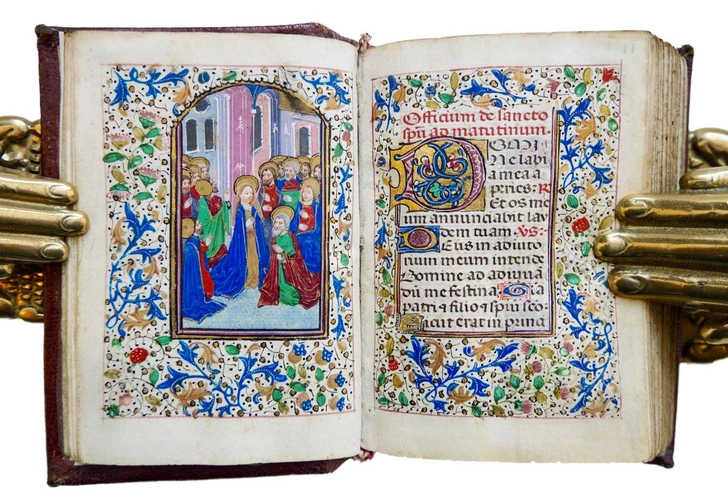 Officium de sancto
spu ad matutinum.
DOMI
Ne labi
a mea a
peries: R
Et os me
um annunciabit lau
dem tuam. Vs:
DEus in adiuto
rium meum intende
Domine ad adiuuã
dũ me festina Gla
Patri & filio & spui sco
Sicut erat in princi